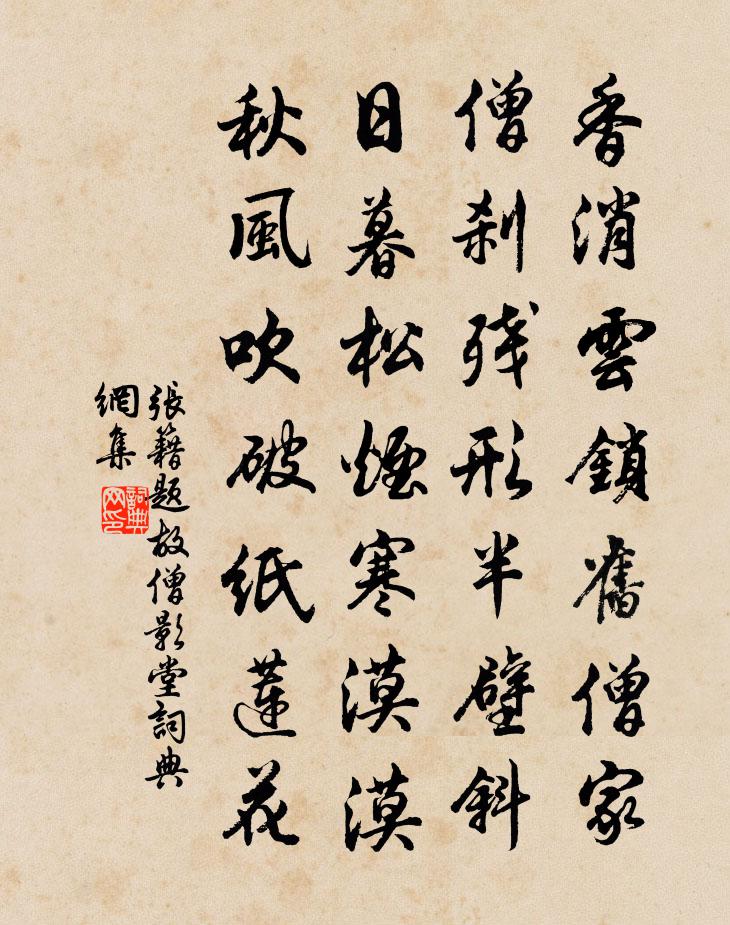 香消雲鎖舊僧家
僧刹残形半壁斜
日暮松煙寒漠漠
秋風吹破紙蓮花
張籍題故僧影堂詞典
網集
詞典
网印